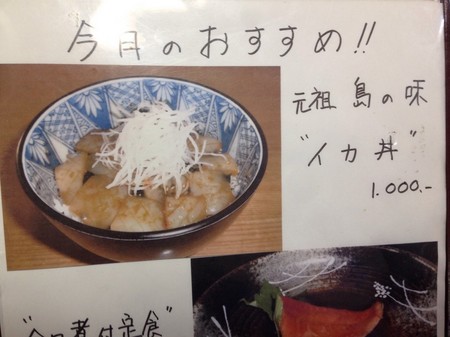 今月のおすすめ!!
元祖 島の味
"イカ丼"
1.000.-
煮付定食"